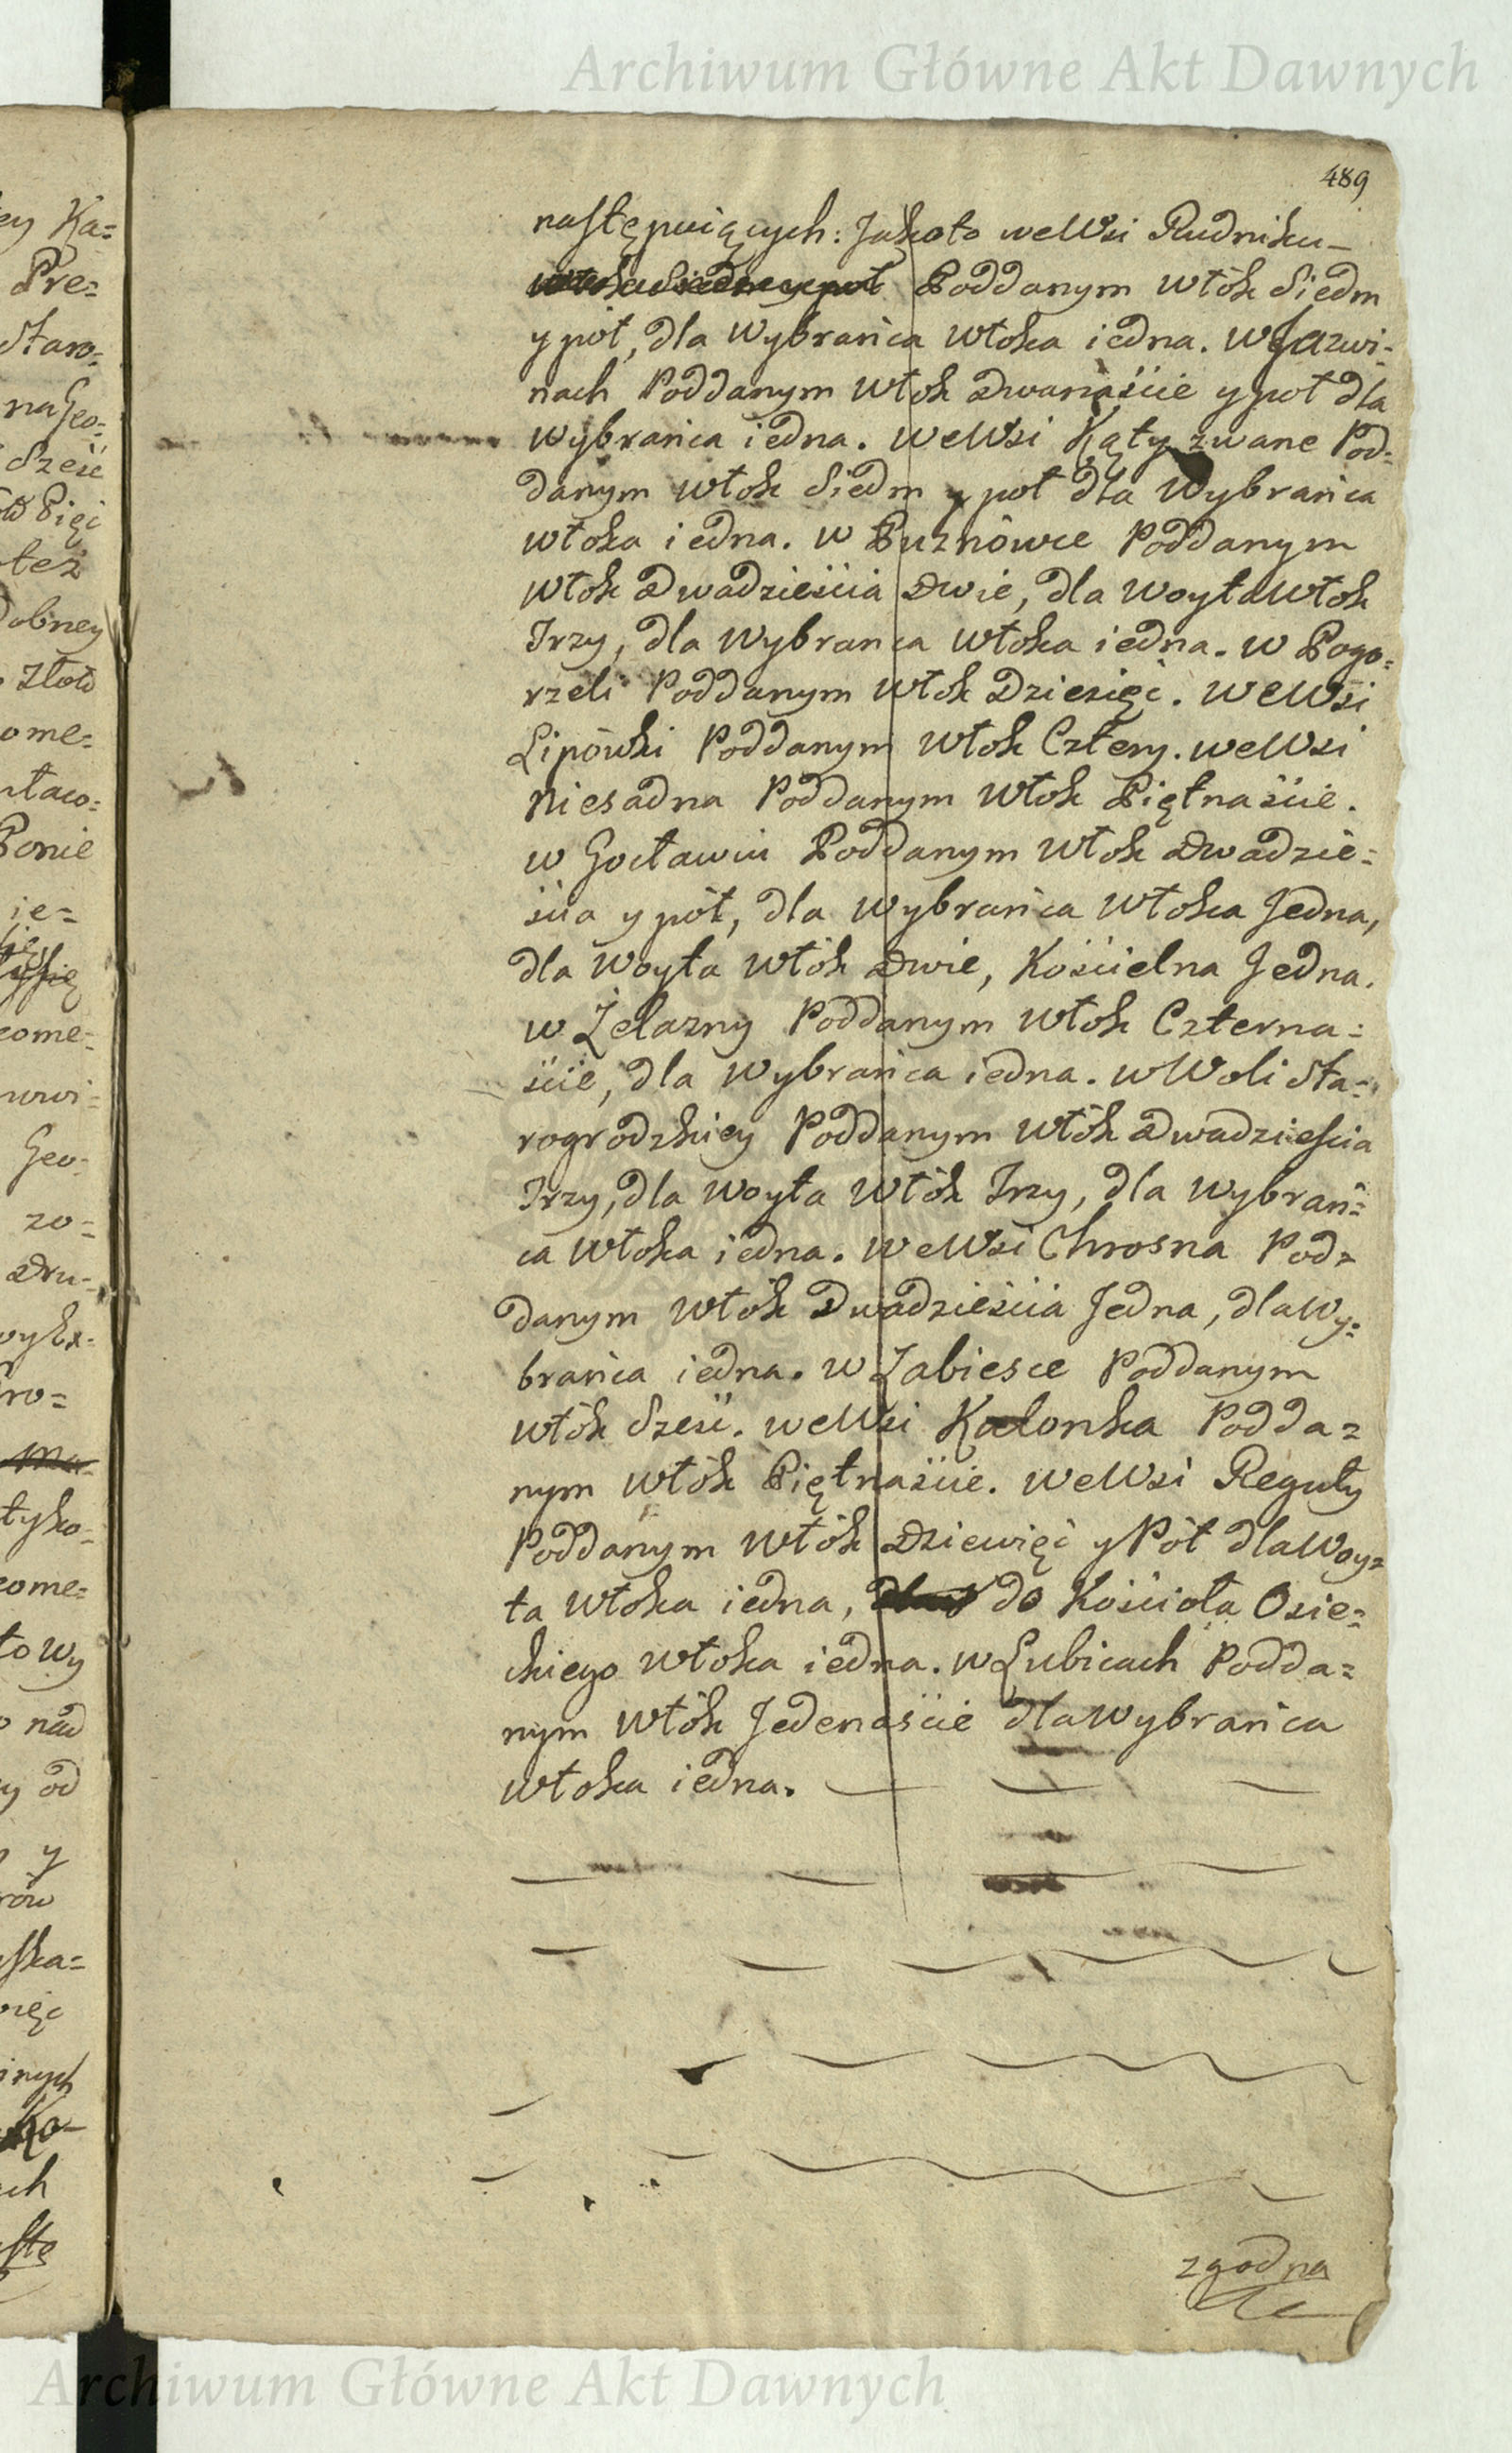 Archiwum Główne Akt Dawnych
489
następuiących: Jakoto weWsi Rudniku
Poddanym włók Siedm
y pół, dla Wybrańca włoka iedna. w Jazwi-
nach Poddanym włok Dwanaście y poł dla
Wybrańca iedna. weWsi Kąty zwane Pod=
danym włok Siedm y poł dla Wybrańca
włoka iedna. w Buznowce Poddanym
włok Dwadzieścia Dwie, dla Woyta włok
Trzy, dla Wybranca włoka iedna. w Pogo=
rzeli Poddanym włok Dziesięć. weWsi
Lipówki Poddanym włok Cztery. weWsi
Niesadna Poddanym włok Piętnaście.
w Gocławiu Poddanym włok Dwadzie=
ścia y pół, dla Wybrańca włoka Jedna,
dla Woyta włók Dwie, Kościelna Jedna.
w Żelazny Poddanym włok Czterna=
ście, dla Wybrańca iedna. w Woli Sta=
rogrodzkiey Poddanym włók Dwadzieścia
Trzy, dla Woyta włók Trzy, dla Wybrań=
ca włoka iedna. weWsi Chrosna Pod=
danym włók Dwadzieścia Jedna, dla Wy=
brańca iedna. w Zabiesce Poddanym
włók Sześć. weWsi Kalonka Podda=
nym włók Piętnaście. weWsi Reguty
Poddanym włók Dziewięć y Pół dla Woy=
ta włoka iedna, do Kościoła Osie=
ckiego włoka iedna. w Łubicach Podda=
nym włók Jedenaście dla Wybrańca
włoka iedna.
zgodna
Archiwum Główne Akt Dawnych